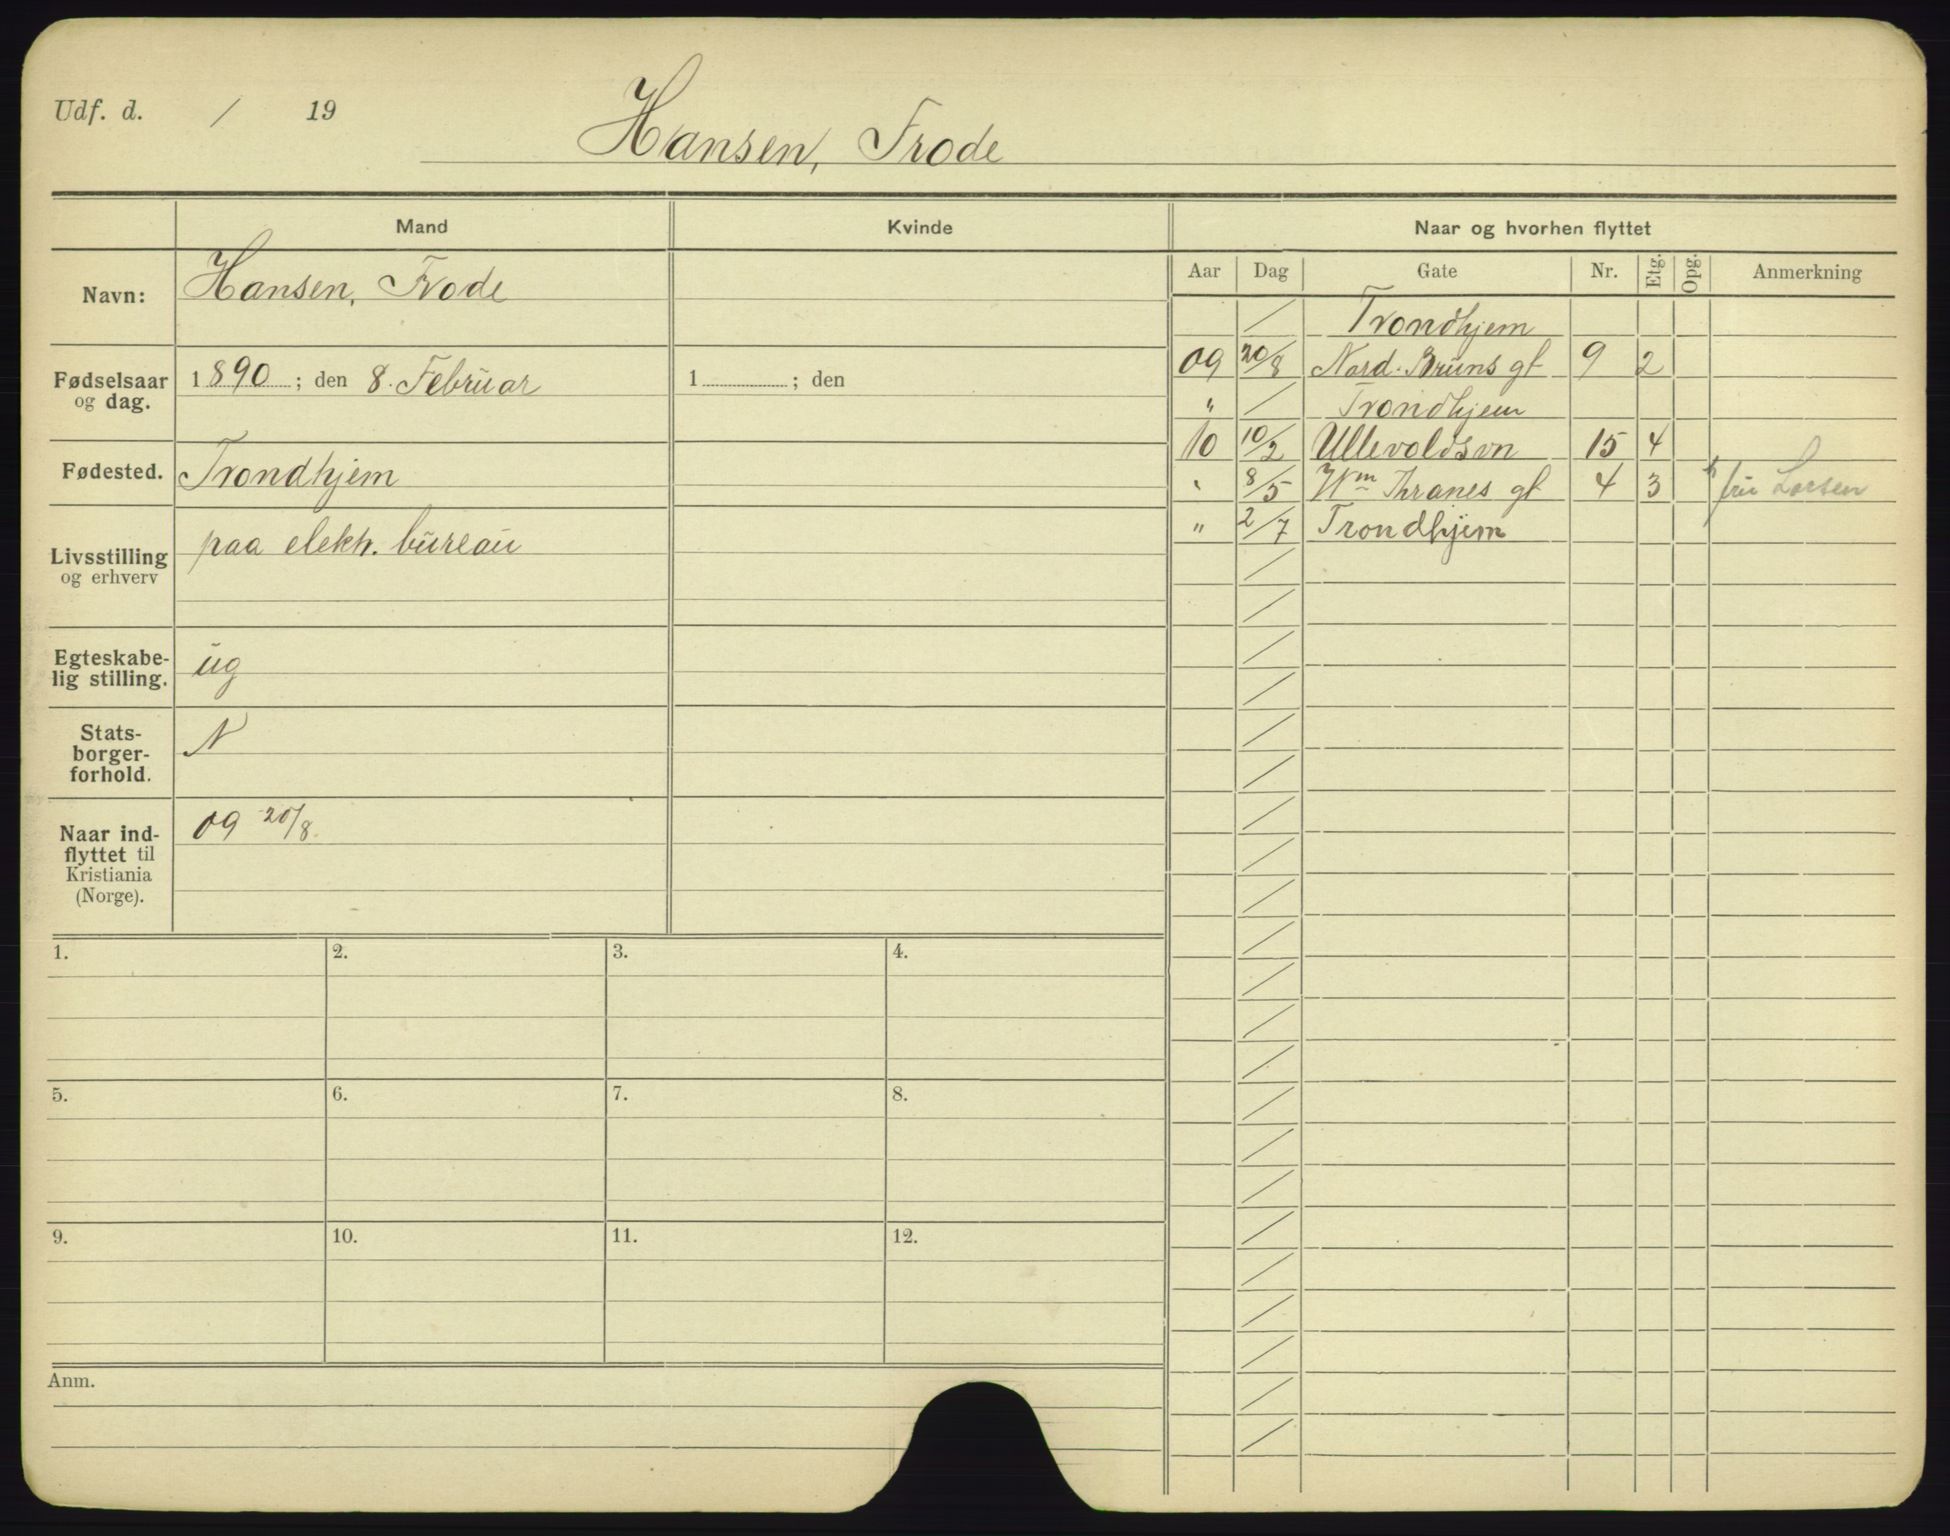 Udf. d. / 19
Hansen, Frode
Mand
Kvinde
Naar og hvorhen flyttet
Aar Dag Gate Nr. Etg. Opg. Anmerkning
Navn: Hansen, Frode
Fødselsaar og dag. 1890; den 8. Februar
1 ; den
Fødested. Trondhjem
Livsstilling og erhverv
paa elektr. bureau
Egteskabe-
lig stilling. ug
Stats-
borger-
forhold. N
Naar ind-
flyttet til
Kristiania
(Norge).
09 20/8.
/ Trondhjem
09 20/8 Nord. Bruns gt 9 2
" / Trondhjem
10 10/2 Ullevoldsvn 15 4
" 8/5 Wm Thranes gt 4 3 fru Larsen
" 2/7 Trondhjem
1. 2. 3. 4.
5. 6. 7. 8.
9. 10. 11. 12.
Anm.